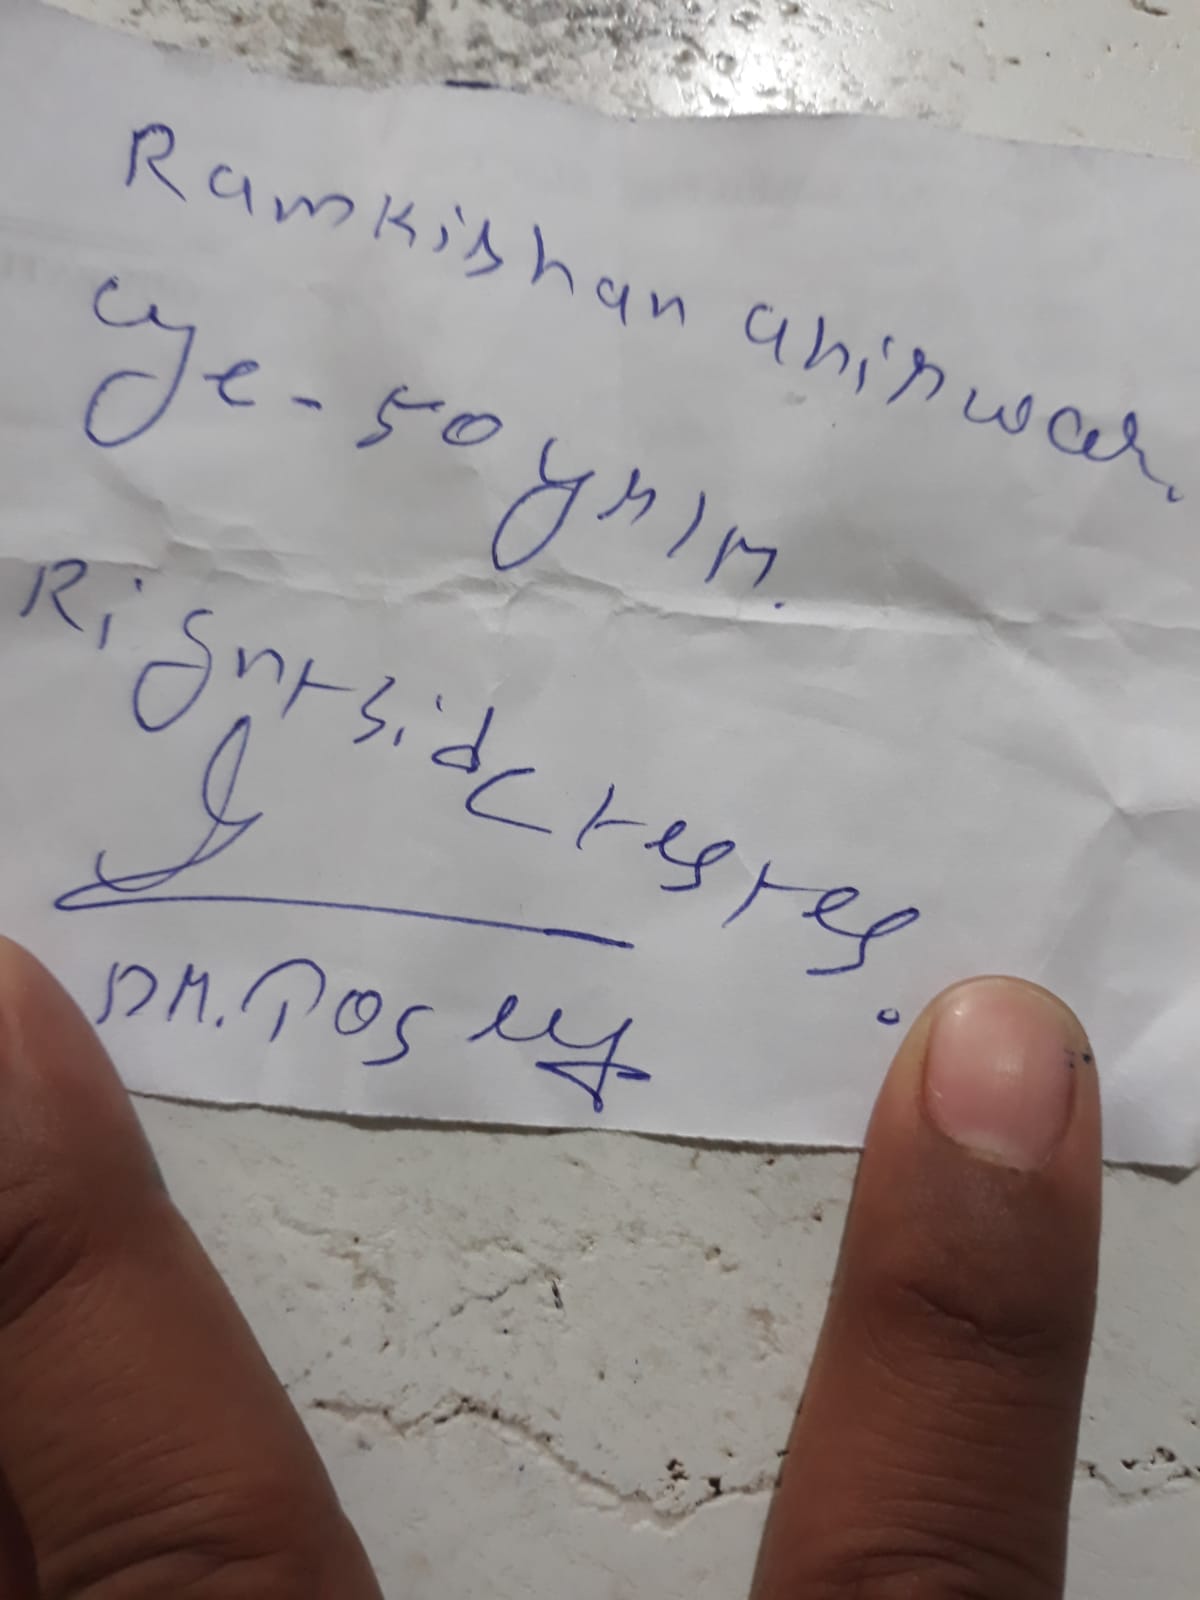 Ramkishan ahirwar.
age - 50 yr / M.
Right side testes.
DR.